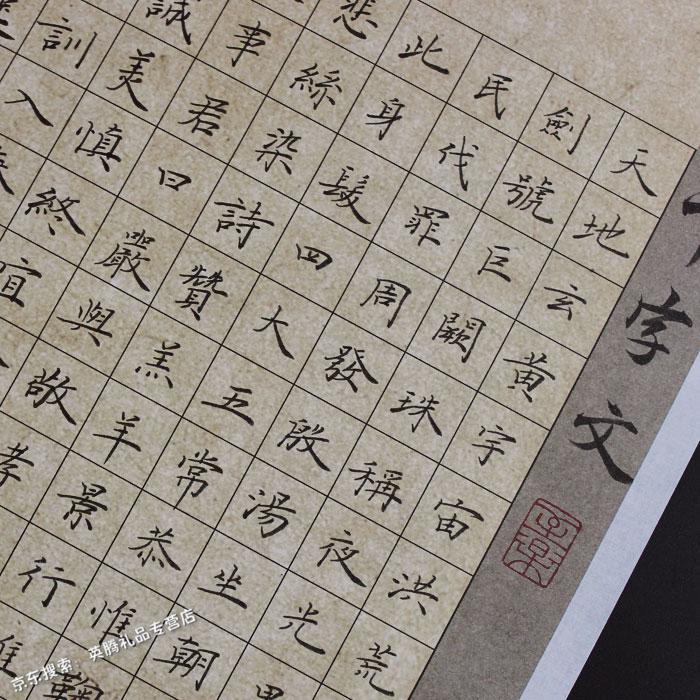 字文
天地玄黃宇宙洪荒
劍號巨闕珠稱夜光
民伐罪周發殷湯坐朝
此身髮四大五常恭惟鞠
悲絲染詩贊羔羊景行維
事君曰嚴與敬孝
誠美慎終宜
訓入
京东搜索:英腾礼品专营店